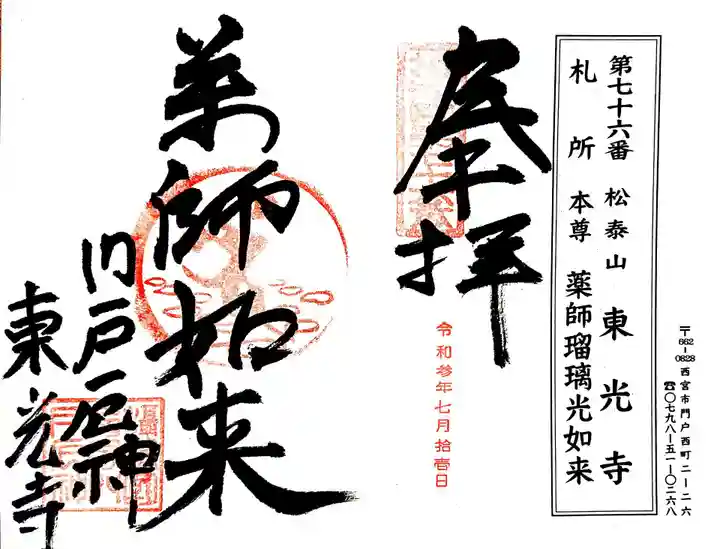 第七十六番 松泰山 東光寺
札所 本尊 薬師瑠璃光如来
〒662-0828 西宮市門戸西町二ー二六
☎〇七九八ー五一ー〇二六八
奉拝
令和参年七月拾壱日
薬師如来
門戸厄神
東光寺